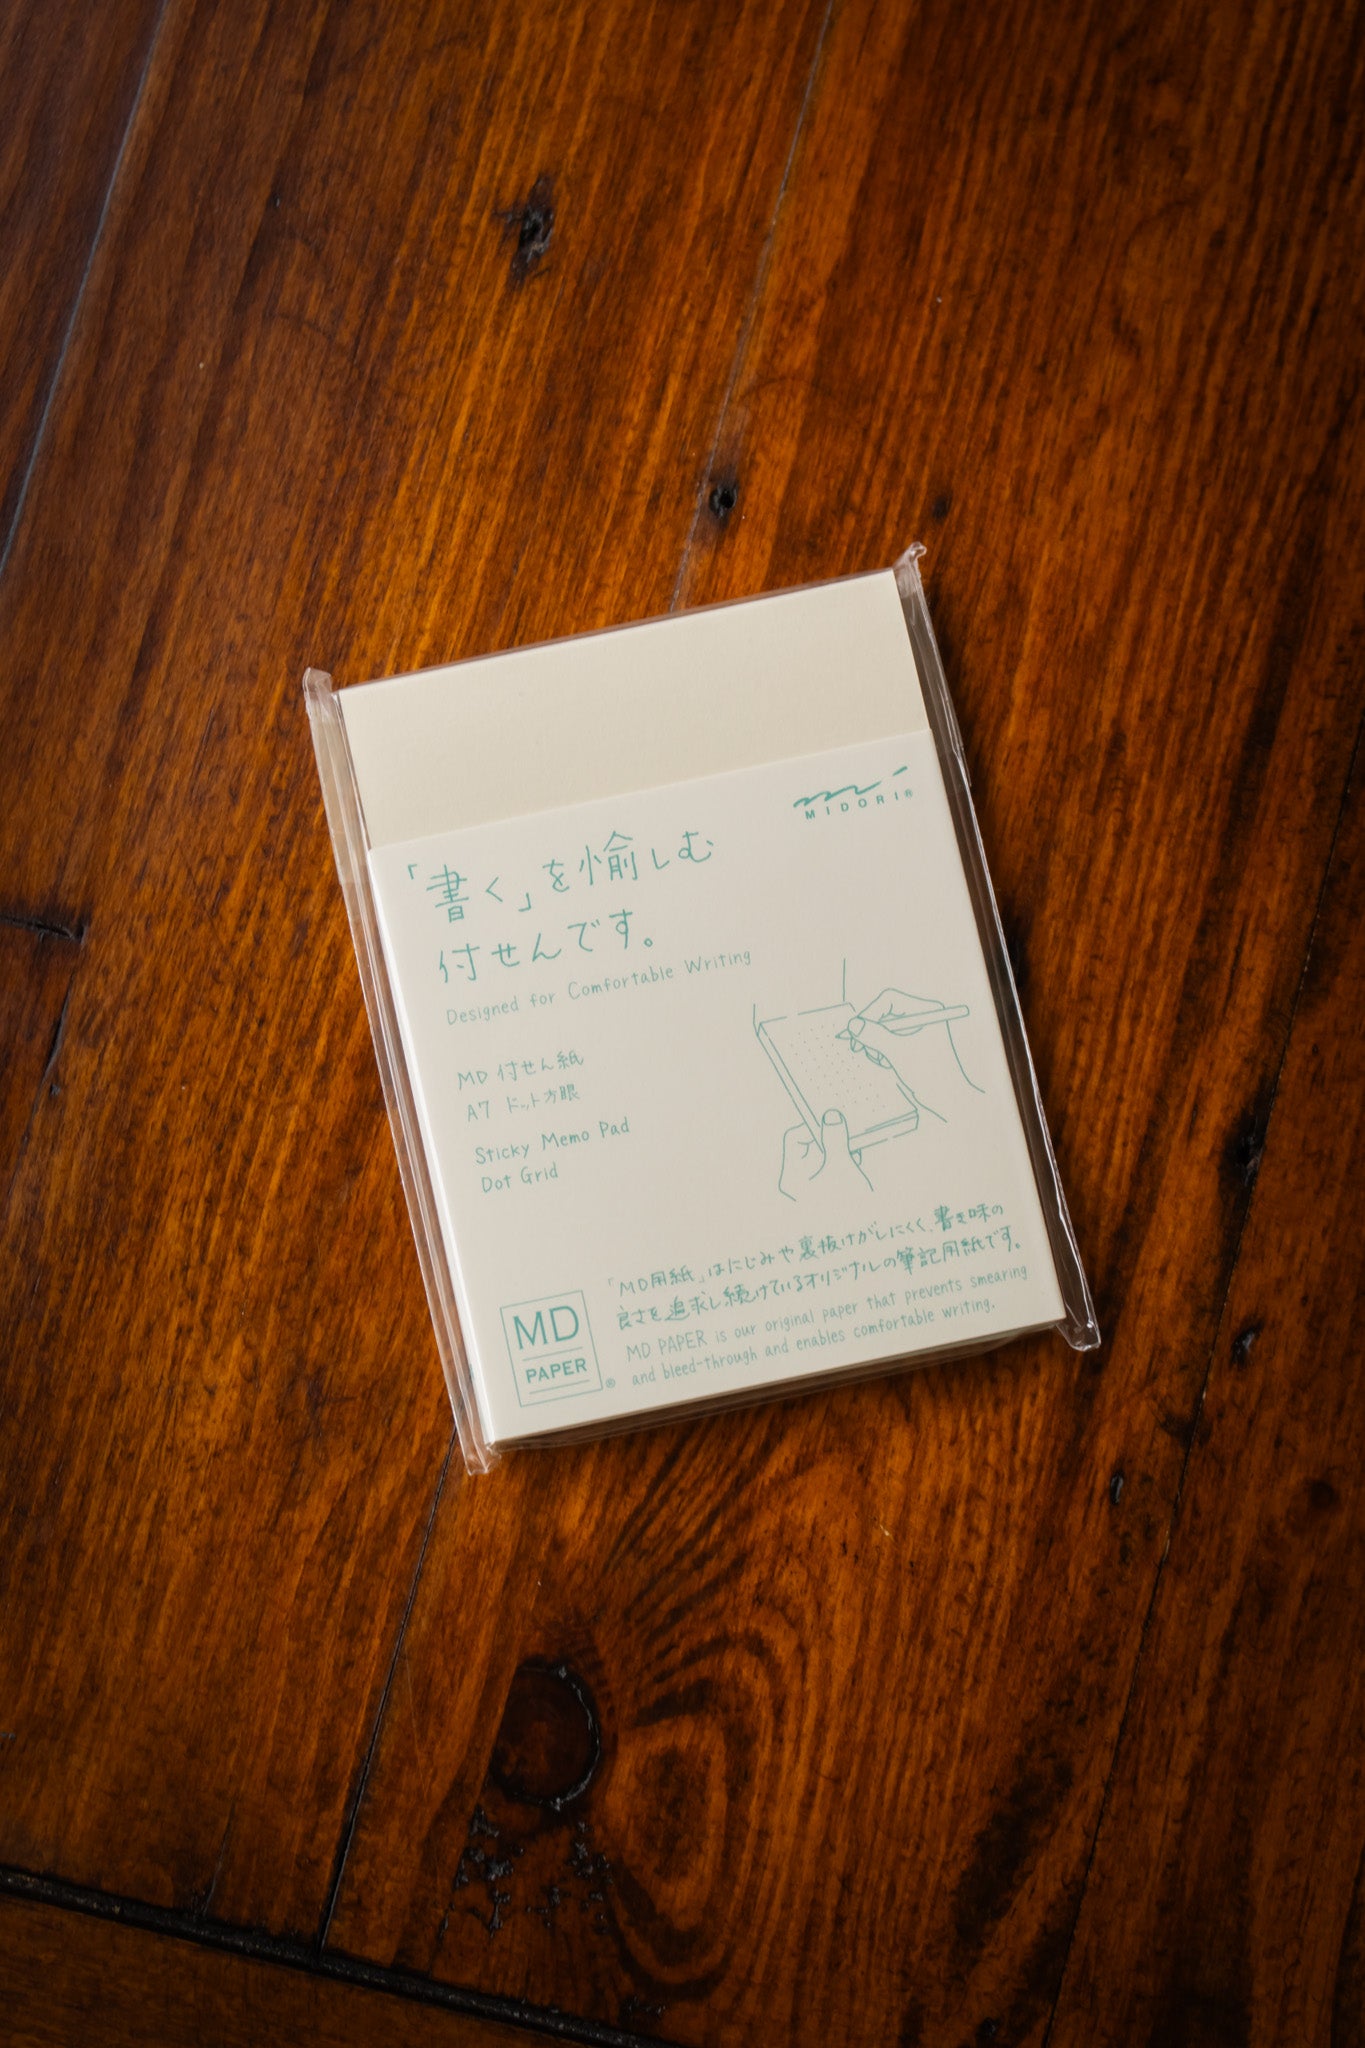 MIDORI®
「書く」を愉しむ
付せんです。
Designed for Comfortable Writing
MD 付せん紙
A7 ドット方眼
Sticky Memo Pad
Dot Grid
「MD用紙」はにじみや裏抜けがしにくく、書き味の
良さを追求し続けているオリジナルの筆記用紙です。
MD PAPER is our original paper that prevents smearing
and bleed-through and enables comfortable writing.
MD
PAPER®